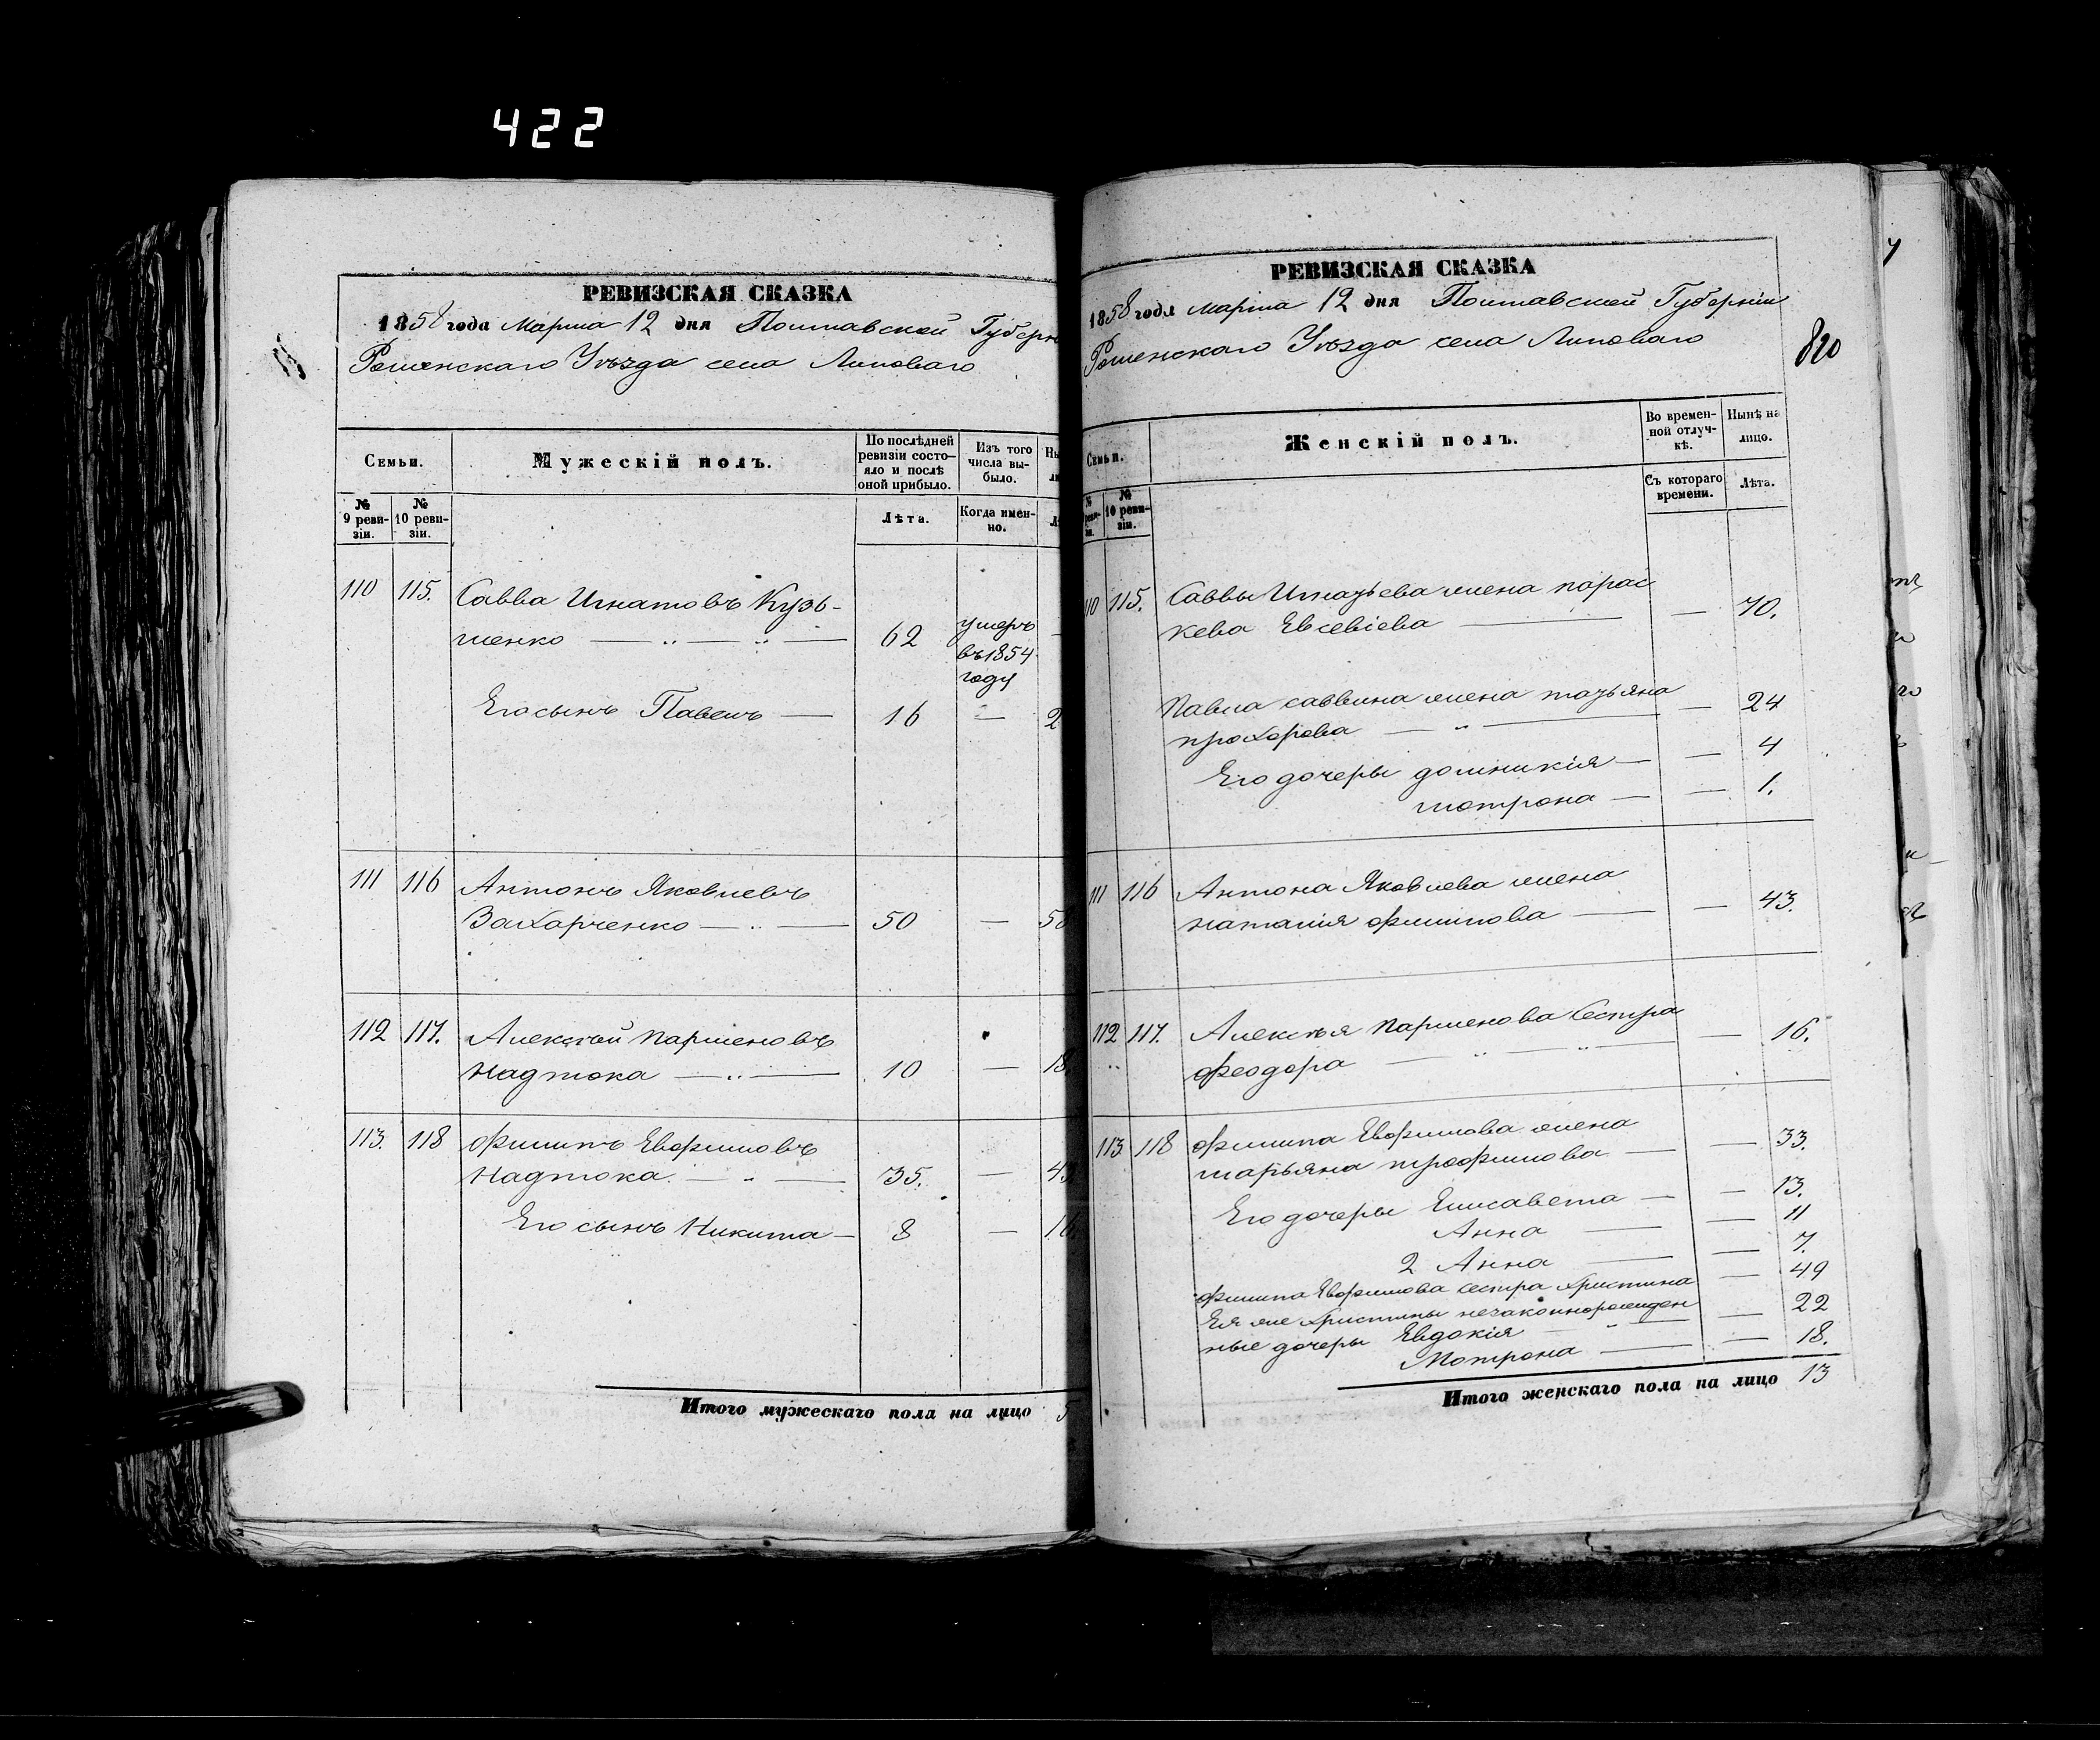 422
РЕВИЗСКАЯ СКАЗКА
1858 года Марта 12 дня Полтавской Губерн
Роменскаго Уѣзда села Липоваго
Семьи.
Мужескій полъ.
По послѣдней
ревизіи состо-
яло и послѣ
оной прибыло.
Изъ того
числа вы-
было.
№
9 реви-
зіи.
№
10 реви-
зіи.
Лѣта.
Когда имен-
но.
110 115. Савва Игнатовъ Кузь-
менко 62 умеръ
въ 1854
году
Его сынъ Павелъ 16 — 2
111 116 Антонъ Яковлевъ
Захарченко 50 — 58
112 117. Алексѣй Парменовъ
Надтока 10 — 18
113. 118 Филипъ Евфимовъ
Надтока 35. — 43
Его сынъ Никита 8 — 16
Итого мужескаго пола на лицо 5
РЕВИЗСКАЯ СКАЗКА
1858 года марта 12 дня Полтавской Губерніи
Роменскаго Уѣзда села Липоваго
820
Семьи.
Женскій полъ.
Во времен-
ной отлуч-
кѣ.
Нынѣ на
лицо.
№
10 реви-
зіи.
Съ котораго
времени.
Лѣта.
110 115. Саввы Игнатьева жена парас
кева Евсевіева — 70.
Павла саввина жена татьяна
прохорова — 24
Его дочеры домникія — 4
мотрона — 1.
111 116 Антона Яковлева жена
наталія филипова — 43.
112 117. Алексѣя Парменова Сестра
феодора — 16.
113. 118 филипа Евфимова жена
марьяна трофимова — 33.
Его дочеры Елисавета — 13.
Анна — 11
2 Анна — 7.
филипа Евфимова сестра Христина — 49
Ея же Христины незаконнорожден
ные дочеры Евдокія — 22
Мотрона — 18.
Итого женскаго пола на лицо 13